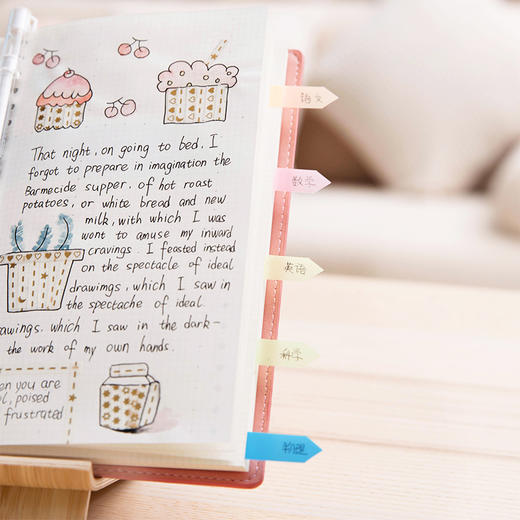 That night, on going to bed, I
forgot to prepare in imagination the
Barmecide supper, of hot roast
potatoes, or white bread and new
milk, with which I was
wont to amuse my inward
cravings. I feasted instead
on the spectacle of ideal
drawings, which I saw in
the spectache of ideal.
rawings, which I saw in the dark-
the work of my own hands.
en you are
l, poised
frustrated
语文
数学
英语
科学
物理